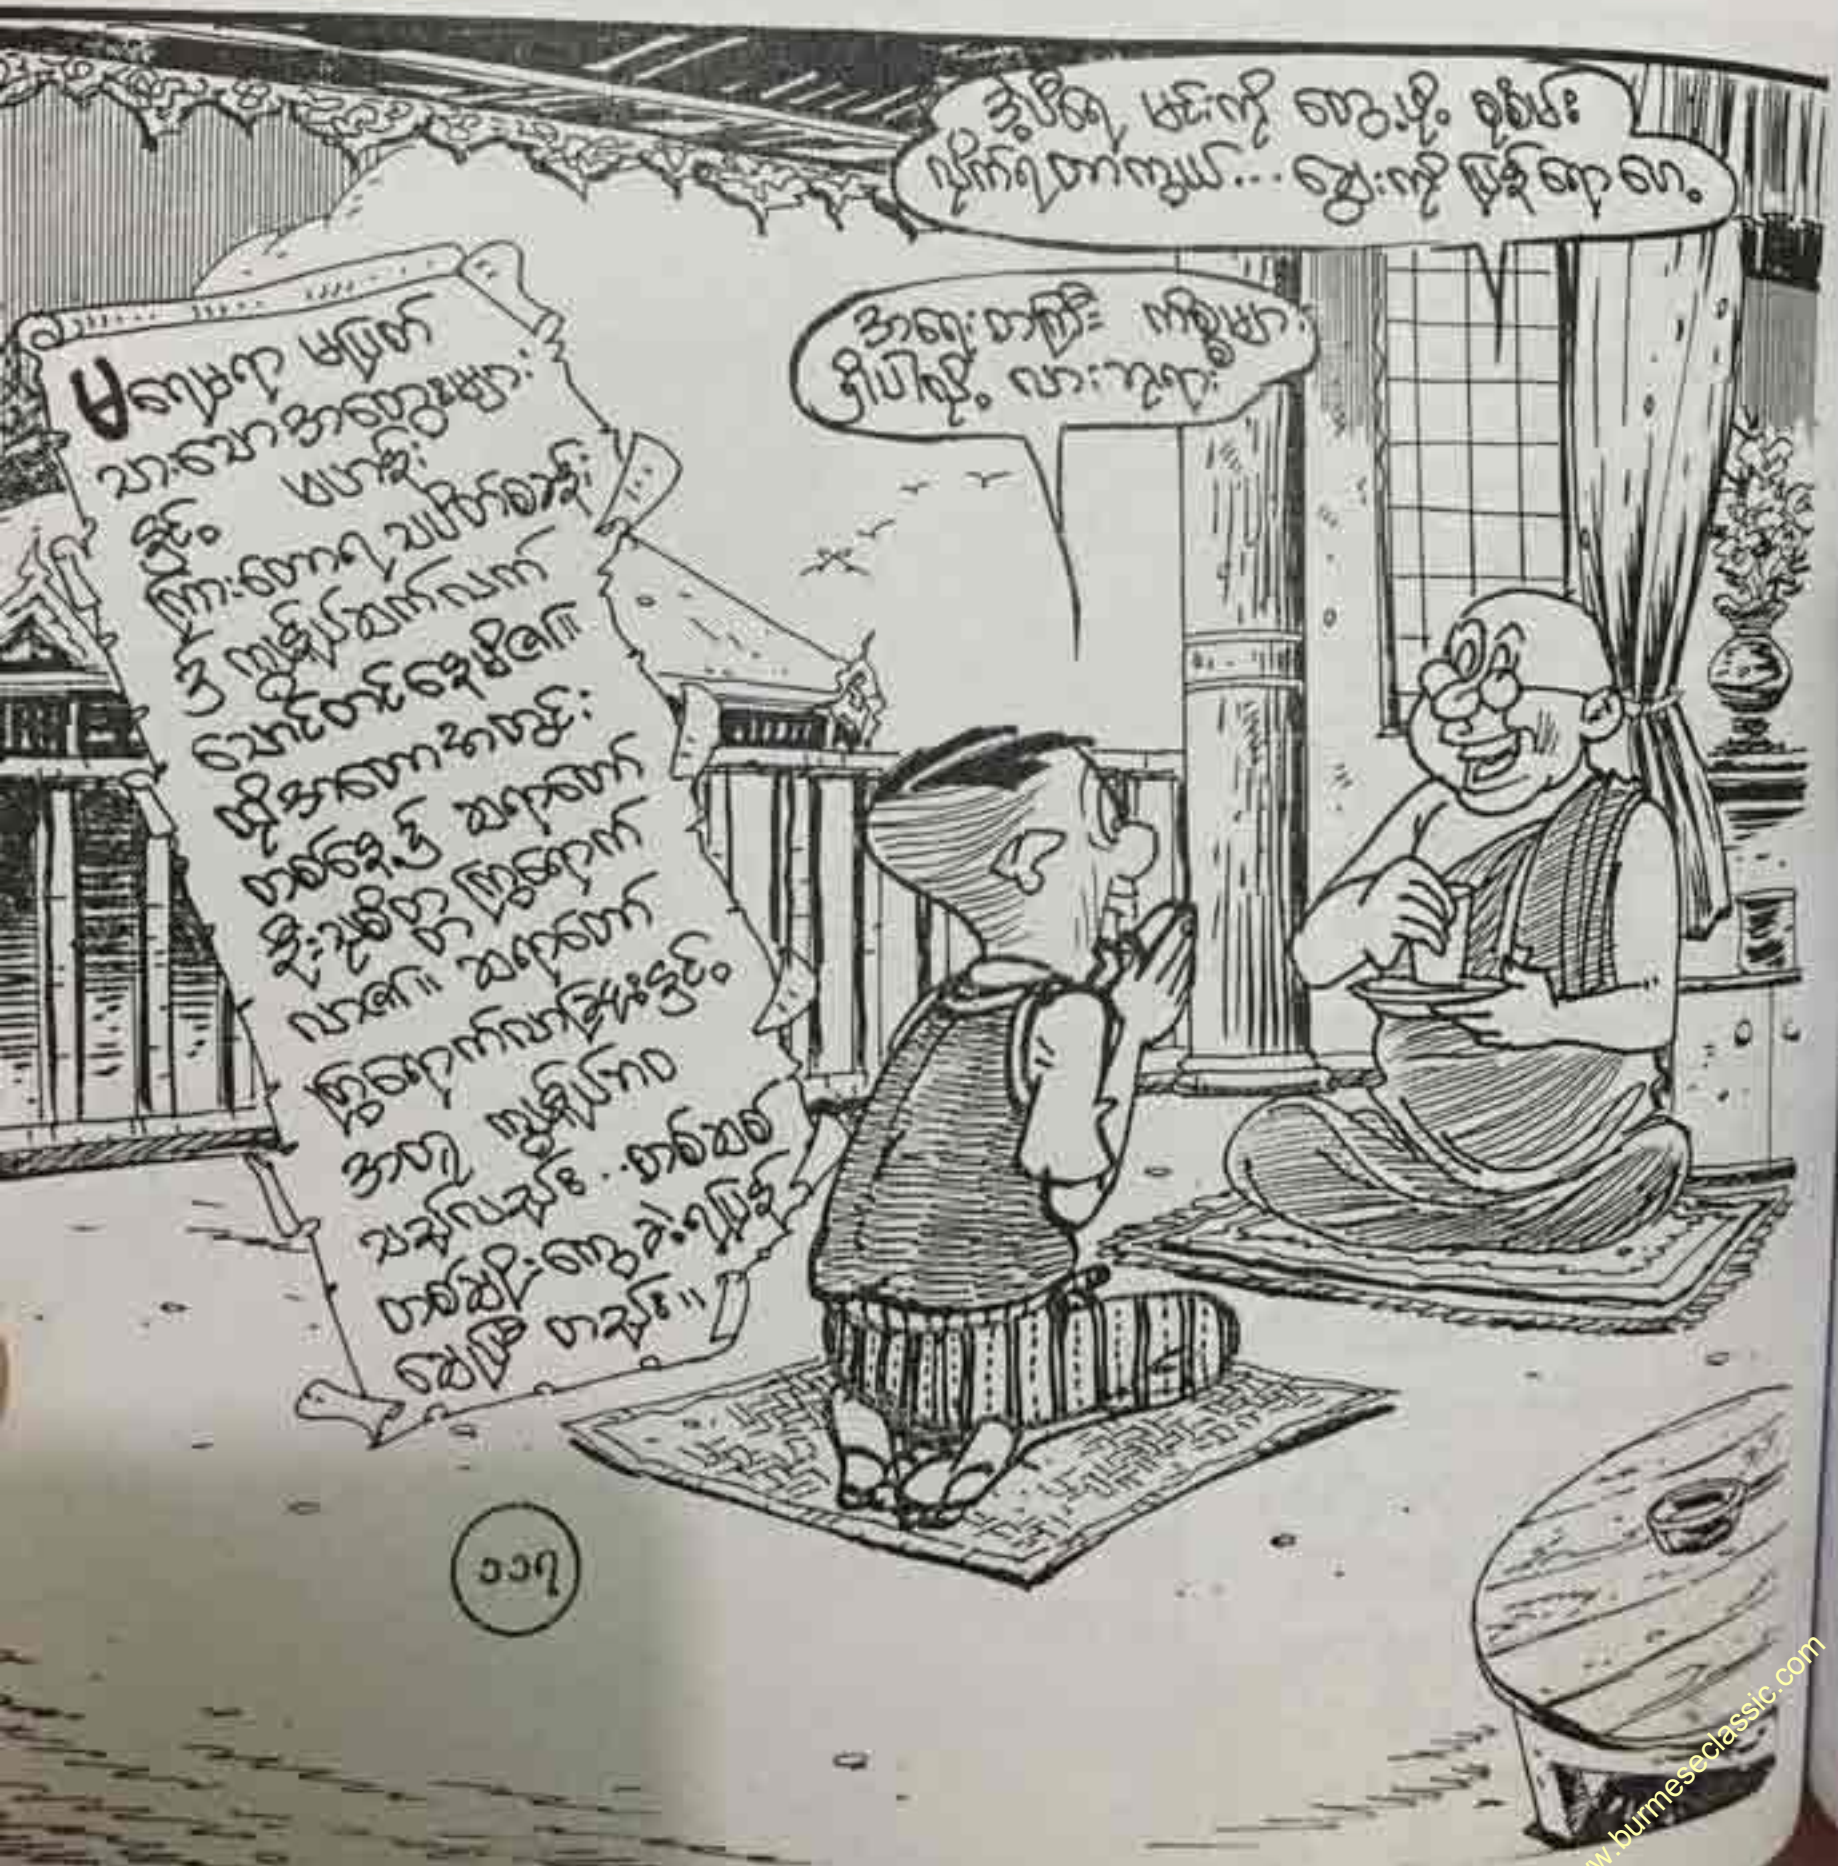 ဒါ့ပီရေ့ မင်းကို တွေ့ဖို့ စုစမ်း
လိုက်ရတာကွယ်... သွေးကို ပြန်ရောပေါ့
အရေးတကြီး ကိစ္စများ
ရှိပါလို့ လားဘုရား
မရေမရာ မပြတ်
သားသောအတွေးများ
နှင့် မဟန်း
ကြားတောရ သပိတ်စခန်း
၌ ကျွန်ုပ်ဆက်လက်
သောင်တင်နေမိ၏။
ထိုအတောအတွင်း
တစ်နေ့၌ ဆရာတော်
ဦးသုစိတ္တ ကြွရောက်
လာ၏။ ဆရာတော်
ကြွရောက်လာခြင်းနှင့်
အတူ ကျွန်ုပ်ဘဝ
သည်လည်း...တစ်ဆစ်
တစ်ချိုးကွေ့ခဲ့ရပြန်
ချေပြီ တည်း။
၁၁၇
w.burmeseclassic.com